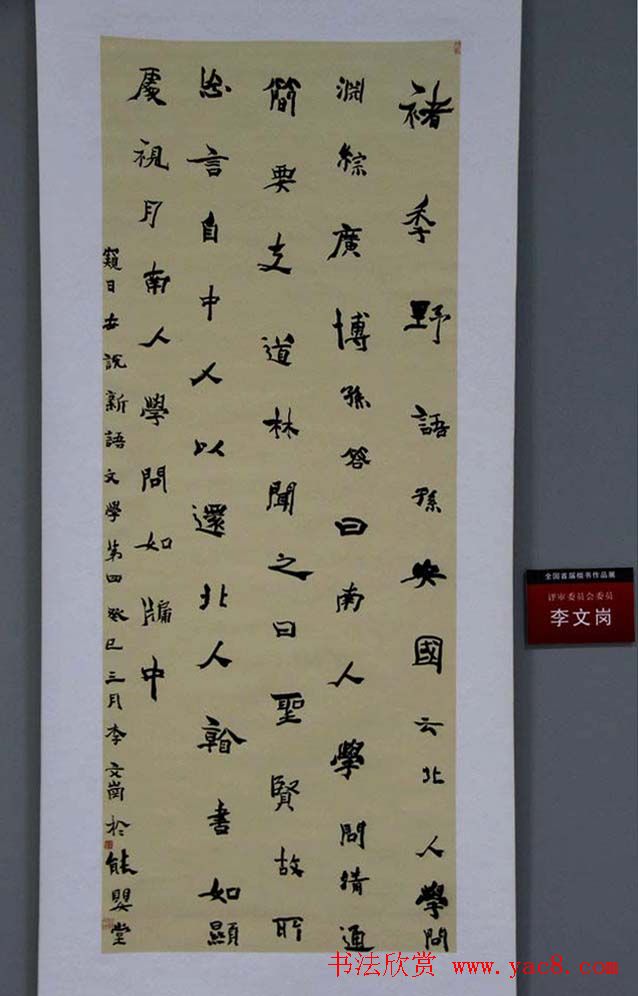 褚季野語孫安國云北人學問
淵綜廣博孫答曰南人學問精通
簡要支道林聞之曰聖賢故所
忘言自中人以還北人看書如顯
處視月南人學問如牖中
窺日世說新語文學第四癸巳三月李文崗於能嬰堂
全国首届楷书作品展
评审委员会委员
李文岗
书法欣赏 www.yac8.com